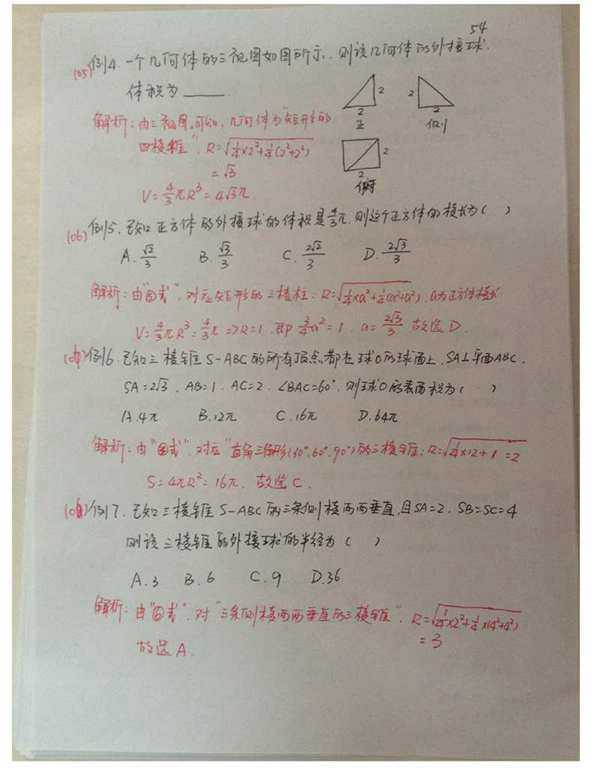 54
(05) 例4. 一个几何体的三视图如图所示, 则该几何体的外接球
体积为 ____.
2 2 正
2 2 侧
2 2 俯
解析: 由三视图可知, 几何体为"矩形的
四棱锥", R=√(¼×2²+¼(2²+2²))
=√3
V=4/3πR³=4√3π
(06) 例5. 已知正方体的外接球的体积是4/3π, 则这个正方体的棱长为( )
A. √2/3 B. √3/3 C. 2√2/3 D. 2√3/3
解析: 由"图式", 对应矩形的三棱柱: R=√(¼×a²+¼(a²+a²)), a为正方体棱长
V=4/3πR³=4/3π ⇒R=1. 即 ¾a²=1. a=2√3/3 故选D.
例6. 已知三棱锥S-ABC的所有顶点都在球O的球面上, SA⊥平面ABC,
SA=2√3, AB=1. AC=2. ∠BAC=60°, 则球O的表面积为( )
A.4π B.12π C.16π D.64π
解析: 由"图式", 对应"直角三角形(30°,60°,90°)的三棱锥: R=√(¼×12+1)=2
S=4πR²=16π. 故选C.
例7. 已知三棱锥S-ABC的三条侧棱两两垂直, 且SA=2, SB=SC=4
则该三棱锥的外接球的半径为( )
A.3 B.6 C.9 D.36
解析: 由"图式", 对"三条侧棱两两垂直的三棱锥", R=√(¼×2²+¼×(4²+4²))
=3
故选A.